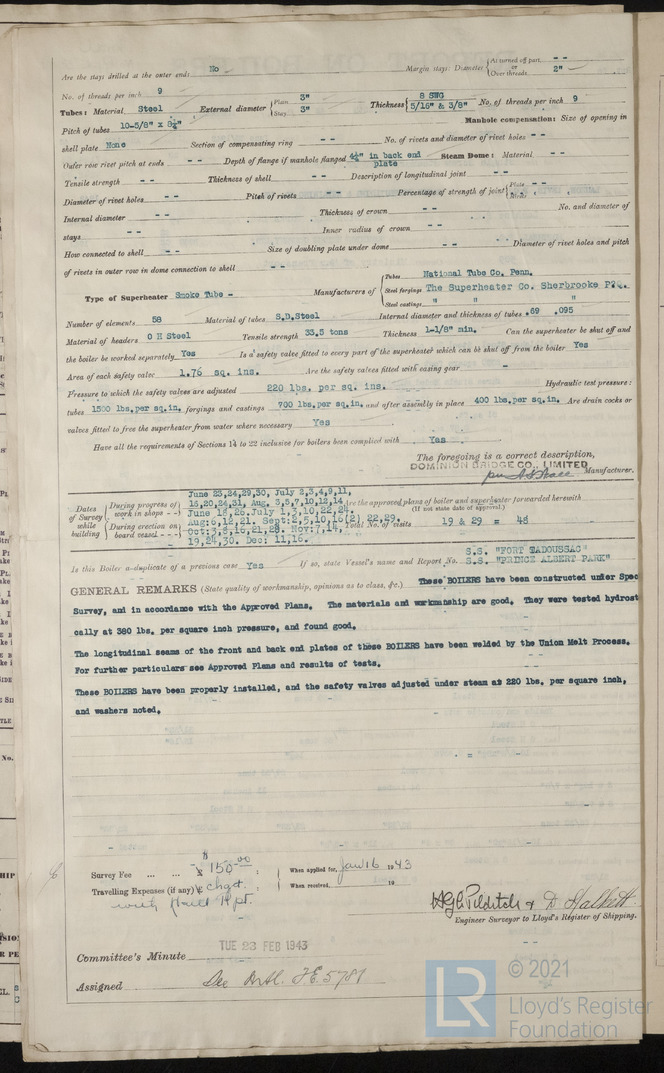 Are the stays drilled at the outer ends No Margin stays: Diameter { At turned off part, - - or Over threads 2" -
No. of threads per inch 9
Tubes: Material Steel External diameter { Plain 3" Stay 3" Thickness { 8 SWG 5/16" & 3/8" No. of threads per inch 9
Pitch of tubes 10-5/8" x Manhole compensation: Size of opening in
shell plate None Section of compensating ring - - No. of rivets and diameter of rivet holes - -
Outer row rivet pitch at ends - - Depth of flange if manhole flanged 4½" in back end plate Steam Dome: Material - -
Tensile strength - - Thickness of shell - - Description of longitudinal joint - -
Diameter of rivet holes - - Pitch of rivets - - Percentage of strength of joint { Plate - - Rivet
Internal diameter - - Thickness of crown - - No. and diameter of
stays - - Inner radius of crown - -
How connected to shell - - Size of doubling plate under dome - - Diameter of rivet holes and pitch
of rivets in outer row in dome connection to shell - -
Type of Superheater Smoke Tube - Manufacturers of { Tubes National Tube Co. Penn. Steel forgings The Superheater Co. Sherbrooke P.Q. Steel castings " " "
Number of elements 58 Material of tubes S.D.Steel Internal diameter and thickness of tubes .69 .095
Material of headers O H Steel Tensile strength 33.5 tons Thickness 1-1/8" min. Can the superheater be shut off and
the boiler be worked separately Yes Is a safety valve fitted to every part of the superheater which can be shut off from the boiler Yes
Area of each safety valve 1.76 sq. ins. Are the safety valves fitted with easing gear -
Pressure to which the safety valves are adjusted 220 lbs. per sq. ins. Hydraulic test pressure:
tubes 1500 lbs.per sq.in. forgings and castings 700 lbs.per sq.in. and after assembly in place 400 lbs.per sq.in. Are drain cocks or
valves fitted to free the superheater from water where necessary Yes
Have all the requirements of Sections 14 to 22 inclusive for boilers been complied with Yes
The foregoing is a correct description,
DOMINION BRIDGE CO., LIMITED
Manufacturer.
Dates of Survey while building { During progress of work in shops - - June 23,24,29,30, July 2,3,4,9,11, 15,20,24,31, Aug. 3,5,7,10,12,14 Are the approved plans of boiler and superheater forwarded herewith
(If not state date of approval.)
During erection on board vessel - - - June 18,26.July 1,3,10,22,24. Aug:6,12,21. Sept:2,5,10,16(2) 22,29. Oct:3,8,16,21,28. Nov:7,14, 19,24,30. Dec: 11,16. Total No. of visits 19 & 29 = 48
Is this Boiler a duplicate of a previous case Yes If so, state Vessel's name and Report No. S.S. "FORT TADOUSSAC" S.S. "PRINCE ALBERT PARK"
GENERAL REMARKS (State quality of workmanship, opinions as to class, &c.) These BOILERS have been constructed under Spec
Survey, and in accordance with the Approved Plans. The materials and workmanship are good. They were tested hydrost
cally at 380 lbs. per square inch pressure, and found good.
The longitudinal seams of the front and back end plates of these BOILERS have been welded by the Union Melt Process.
For further particulars see Approved Plans and results of tests.
These BOILERS have been properly installed, and the safety valves adjusted under steam at 220 lbs. per square inch,
and washers noted.
Survey Fee ... ... $ 150.00 : When applied for, Jan 16 1943
Travelling Expenses (if any) £ chgd. : When received, 19
with Hull Rpt.
& D Halkett.
Engineer Surveyor to Lloyd's Register of Shipping.
TUE 23 FEB 1943
Committee's Minute
Assigned See Mtl. F.E. 5781
LR © 2021
Lloyd's Register
Foundation